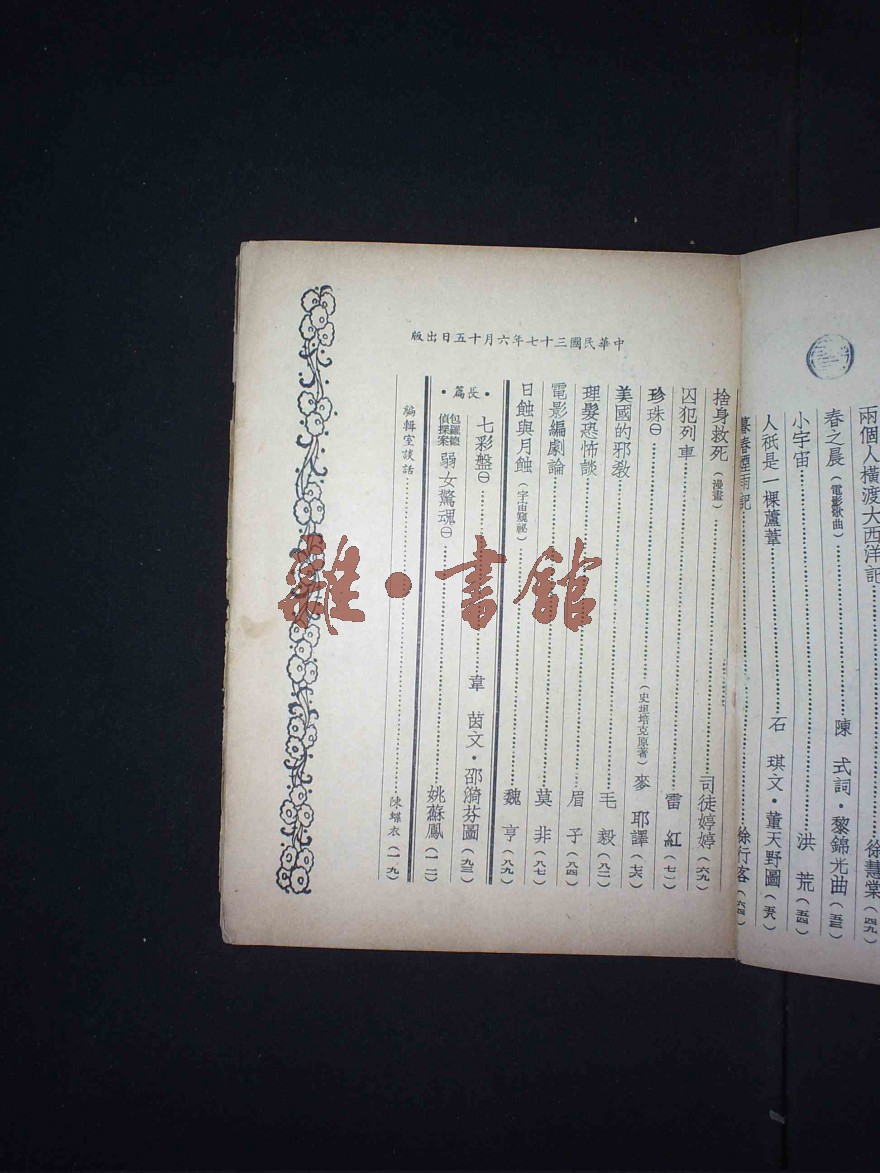 兩個人橫渡大西洋記 徐慧棠(四九)
春之晨(電影歌曲) 陳式詞・黎錦光曲(五三)
小宇宙 洪荒(五四)
人祇是一棵蘆葦 石琪文・董天野圖(五八)
暮春煙雨記 徐行客(六四)
中華民國三十七年六月十五日出版
捨身救死(漫畫) 司徒婷婷(六九)
囚犯列車 雷紅(七一)
珍珠㊀ (史坦培克原著)麥耶譯(七六)
美國的邪教 毛毅(八二)
理髮恐怖談 眉子(八四)
電影編劇論 莫非(八七)
日蝕與月蝕(宇宙窺祕) 魏亨(八九)
・長篇・
七彩盤㊀ 韋茵文・邵漪芬圖(九三)
包羅德偵探案 弱女驚魂㊀ 姚蘇鳳(一一一)
編輯室談話 陳蝶衣(一一九)
雜・書館